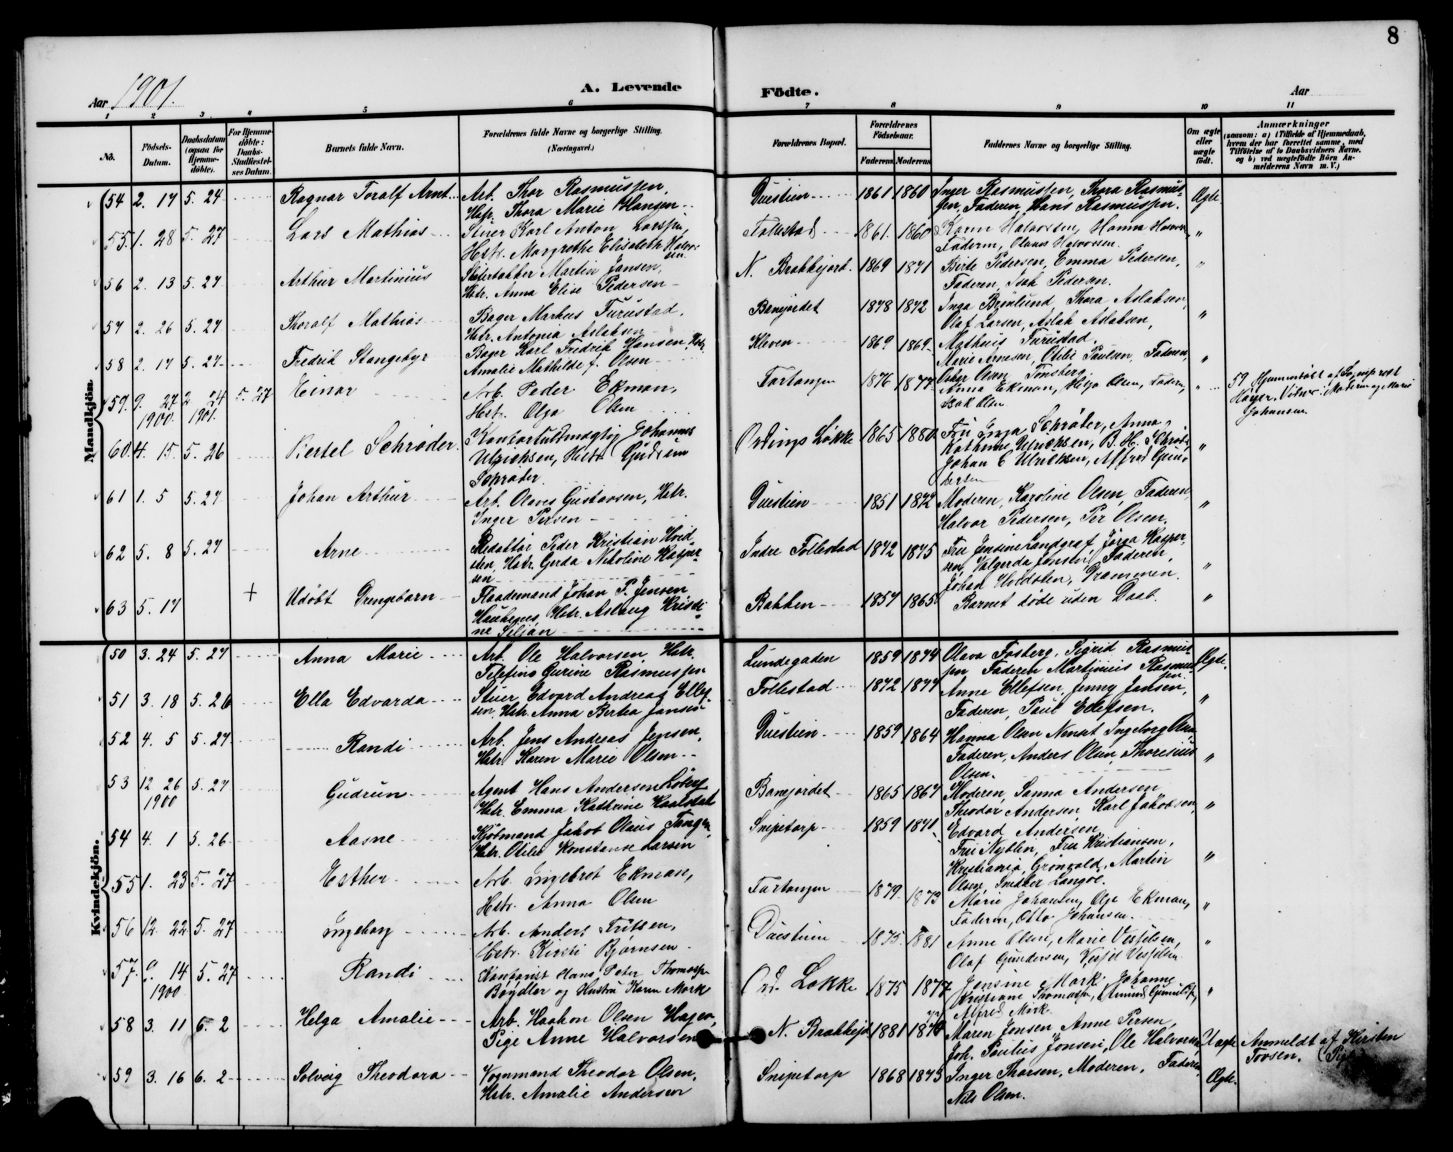 8
Aar 1901.
A. Levende
Fødte.
Aar
1 2 3 4 5 6 7 8 9 10 11
No.
Fødsels-Datum.
Daabsdatum (ogsaa for Hjemme-døbte).
For Hjemme-døbte: Daabs-Stadfæstel-ses Datum.
Barnets fulde Navn.
Forældrenes fulde Navne og borgerlige Stilling. (Næringsvei.)
Forældrenes Bopæl.
Forældrenes Fødselsaar.
Faderens Moderens
Faddernes Navne og borgerlige Stilling.
Om ægte eller uægte født.
Anmærkninger
Mandkjøn.
54 2. 17 5. 24 Ragnar Toralf Arnt Arb. Thor Rasmussen, Duestien 1861 1860 Inger Rasmussen, Thora Rasmus- Ægte
Hstr. Thora Marie Hansen sen, Faderen, Hans Rasmussen.
55. 1. 28 5. 27 Lars Mathias Steier Karl Anton Larssen, Follestad 1861. 1860 Karen Halvorsen, Hanna Halvor- "
Hstr. Margrethe Elisabeth Halvor- Faderen, Olaus Halvorsen.
sen
56 2. 13 5. 27 Arthur Martinius Martin Jansen, N. Brakhejort 1869 1871 Birte Pedersen, Emma Pedersen, "
Hstr. Anna Elise Pedersen Faderen, Isak Pedersen.
57 2. 26 5. 27 Thoralf Mathias Bager Markus Furustad, Banejordet 1878 1872 Inga Thora Aslaksen, "
Hstr. Antonia Aslaksen Olaf Larsen, Aslak Aslaksen,
58 2. 17 5. 27 Fredrik Stangebye Bager Karl Fredrik Hansen Hstr. Kleven 1869 1869 Mathais Furestad, "
Amalie Mathilde f. Olsen Marie Arnesen, Otilie Paulsen, Faderen,
Oskar Olsen Tønsberg.
59. 9. 27 1900 2. 24 1901. 5. 27 Einar Arb. Peder Ekman, Tartangen 1876 1877 Anna Ekman, Olga Olsen, Faderen, " 59 Hjemmedøbt af Sognepræst
Hstr. Olga Olsen Isak Olsen Høyer, Vidner: Moderen og Marie
Johansen
60. 4. 15 5. 26 Bertel Schrøder Kontorfuldmægtig Johannes Ordings Løkke 1865 1880 Fru Inga Schrøder, Anna, "
Ulriksen, Hstr. Gudrun Kathrine Ulriksen, B. H. Schrø-
Schrøder Johan E Ulriksen, Alfred Gun-
61 1. 5 5. 27 Johan Arthur Arb. Olaves Gustavsen, Hstr. Duestien 1851 1872 Moderen, Karoline Olsen, Faderen, "
Inger Persen Halvor Pedersen, Per Olsen.
62 5. 8 5. 27 Arne Redaktør Peder Kristian Hvid- Indre Follestad 1872 1875 Fru Jensine Landgraf, Jørga Kasper- "
sten, Hstr. Gerda Nikoline Kasper- sen, Valgerda Jensen, Faderen
sen Johan Hvidsten, Drammen.
63 5. 17 + Udøbt Drengebarn Johan P. Jensen Bakken 1857 1865 Barnet døde uden Daab. "
Haukenes, Hstr. Aslaug Kristi-
ne Siljan
Kvindekjøn.
50 3. 24 5. 27 Anna Marie Arb. Ole Halvorsen, Hstr. Lundegaden 1859 1874 Olava Fosberg, Sigrid Rasmus- Ægte.
Gurine Rasmussen sen, Faderen Martinius Rasmus-
sen.
51 3. 18 5. 26 Ella Edvarda Steier Edvard Andreas Ellef- Follestad 1872 1877 Anne Ellefsen, Jenny Jansen, "
sen, Hstr. Anna Bertea Jansen Faderen, Paul Ellefsen.
52 4. 5 5. 27 Randi Arb. Jens Andreas Jensen, Duestien 1859 1864 Hanna Olsen Ingeborg Olsen "
Hstr. Karen Marie Olsen Faderen, Anders Olsen, Thoresius
Olsen.
53 12 26 1900 5. 27 Gudrun Agent Hans Andersen Løberg Banejordet 1865 1867 Moderen, Sanna Andersen "
Hstr. Emma Kathrine Kaalstad Theodor Andersen, Karl Jakobsen,
Edvard Andersen
54 4. 1 5. 26 Aasne Kjøbmand Jakob Olaus Tangen, Snipetorp 1859 1871 Fru Nyblin, Fru Kristiansen, "
Hstr. Otilie Konstanse Larsen Kristiania, Grønvold, Martin
Olsen, Snedker Langøe.
55 1. 23 5. 27 Esther Arb. Ingebret Ekman, Tartangen 1879. 1873 Marie Johansen, Olga Ekman, "
Hstr. Anna Olsen Faderen, Otto Johansen.
56 12. 22 5. 27 Ingeborg Arb. Anders Fritsen, Duestien 1875. 1881 Anne Olsen, Marie Vesselsen, "
Hstr. Kirsti Bjørnsen Olaf Gundersen, Vessel Vesselsen
57. 14 1900 5. 27 Randi Hans Peter Thomasen Ord. Løkke 1875 1877 Jensine Mørk, Johanne "
Bøydler og Hustru Karen Mørk Kristiane Thomasen,
Alfred Mørk.
58 3. 11 6. 2 Helga Amalie Arb. Haakon Olsen Hagen, N. Brakhejo 1881 Maren Jensen, Anne Persen, Uægte Anmeldt af Kirsten
Pige Anne Halvorsen Joh. Paulus Jensen, Ole Halvorsen Tovsen, (Pige)
59 3. 16 6. 2 Solveig Theodora Vognmand Theodor Olsen, Snipetorp 1868 1875 Inger Thorsen, Moderen, Faderen, Ægte.
Hstr. Amalie Andersen Nils Olsen.